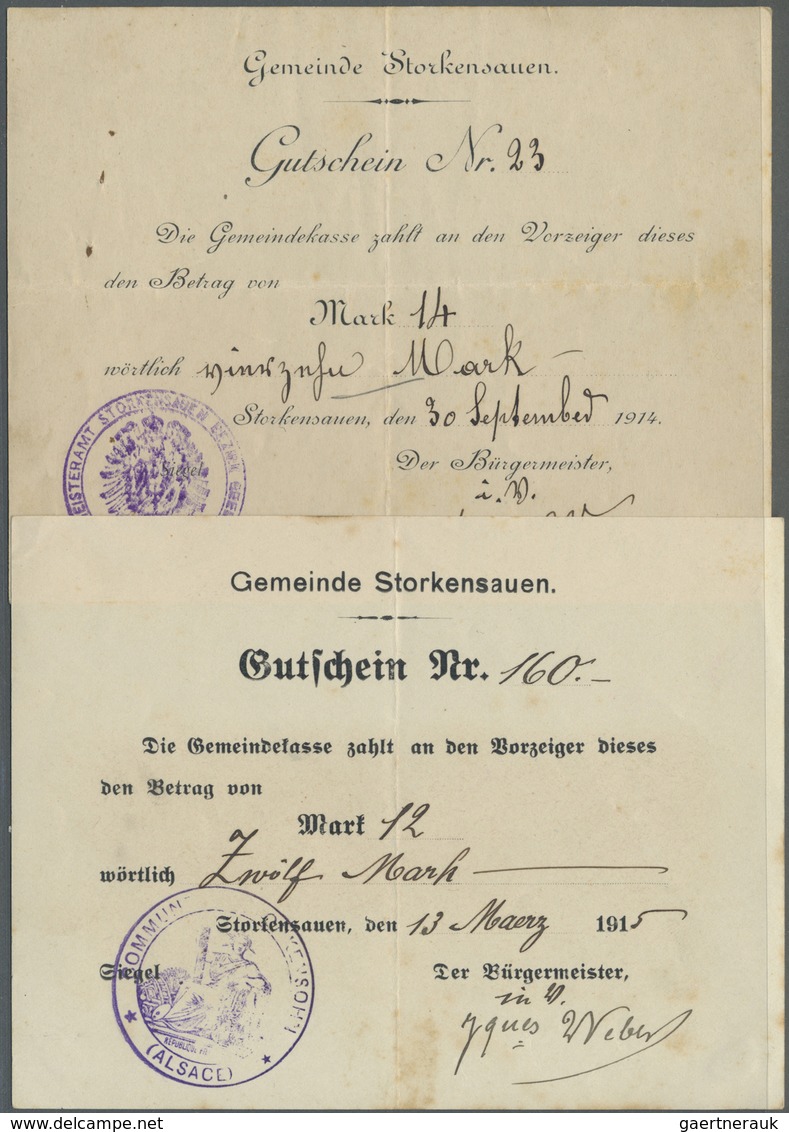 Gemeinde Storkensauen.
Gutschein Nr. 23
Die Gemeindekasse zahlt an den Vorzeiger dieses
den Betrag von
Mark 14
wörtlich vierzehn Mark
Storkensauen, den 30 September 1914.
EISTERAMT STORKENSAUEN
Siegel
Der Bürgermeister,
i. V.
Gemeinde Storkensauen.
Gutschein Nr. 160.-
Die Gemeindekasse zahlt an den Vorzeiger dieses
den Betrag von
Mark 12
wörtlich Zwölf Mark
Storkensauen, den 13 Maerz 1915
Siegel
Der Bürgermeister,
in V.
Jques Weber
(ALSACE)
gaertnerauk